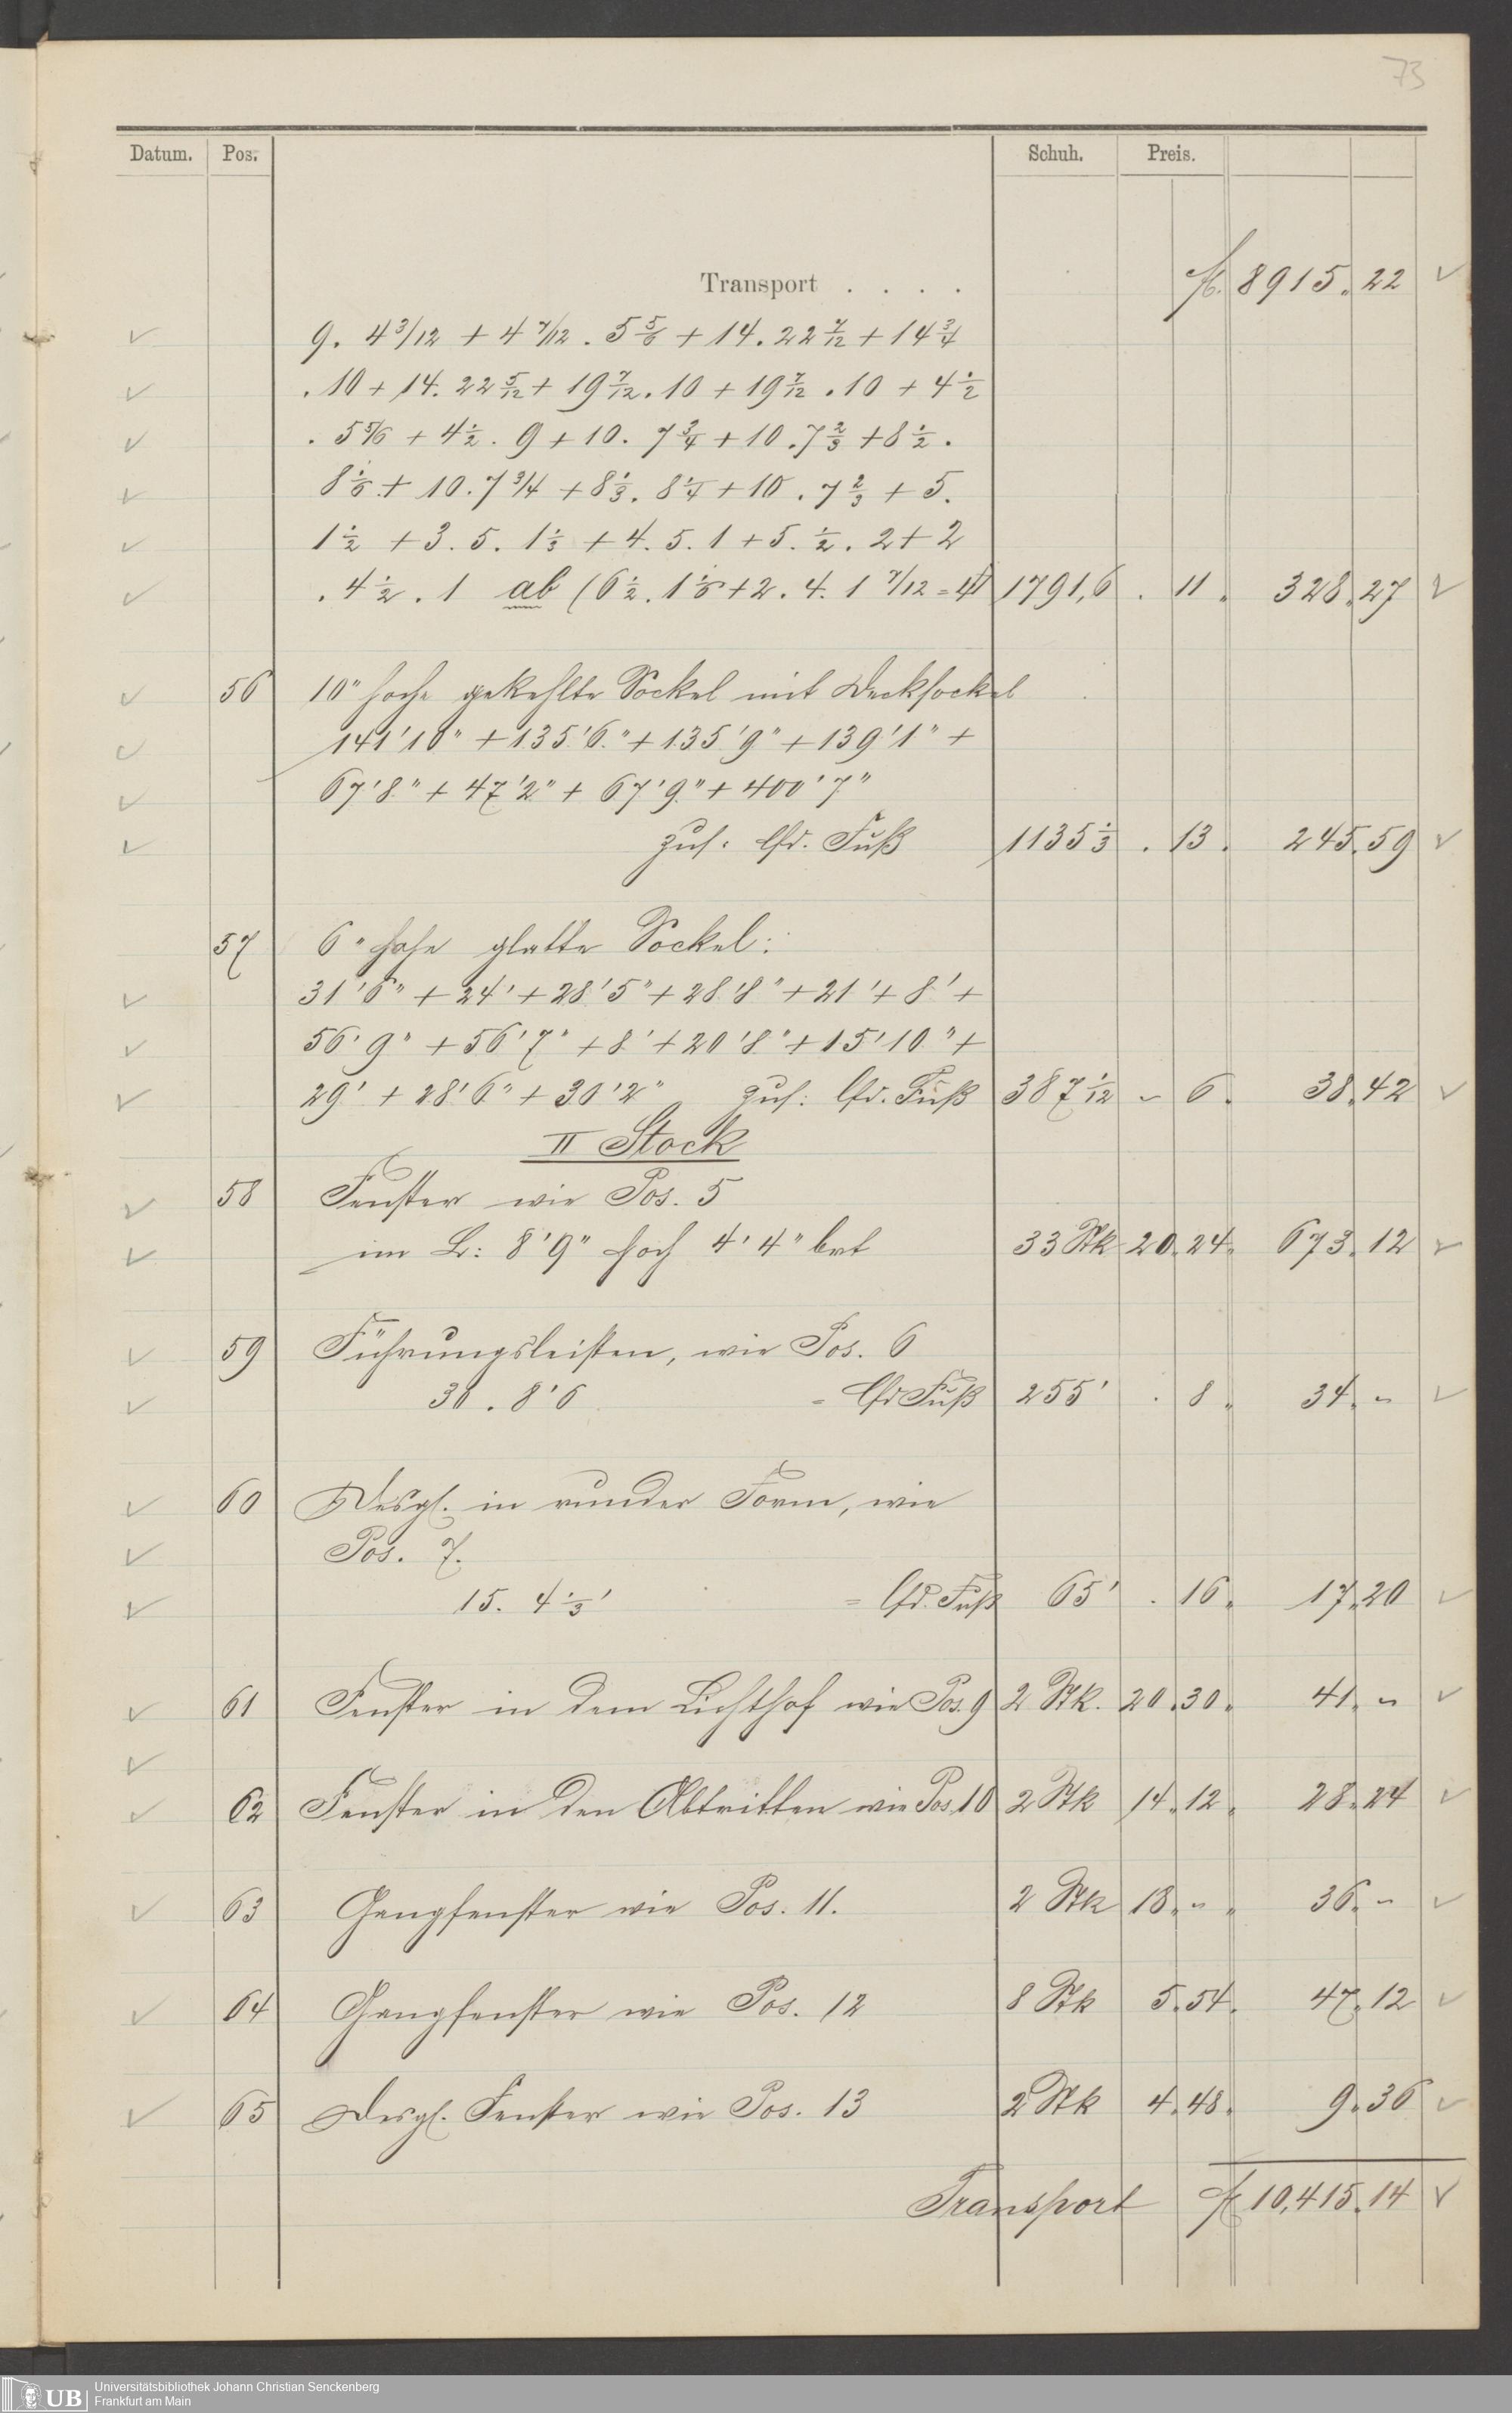 73
Datum. Pos. Schuh. Preis.
Transport . . . . fl. 8915. 22
9. 4 3/12 + 4 7/12 . 5 5/6 + 14. 22 7/12 + 14 3/4
. 10 + 14. 22 5/12 + 19 7/12 . 10 + 19 7/12 . 10 + 4 1/2
. 5 5/6 + 4 1/2 . 9 + 10. 7 3/4 + 10 . 7 2/3 + 8 1/2 .
8 1/6 + 10. 7 3/4 + 8 1/3 . 8 1/4 + 10 . 7 2/3 + 5.
1 1/2 + 3. 5. 1 1/3 + 4. 5. 1 + 5. 1/2 . 2 + 2
. 4 1/2 . 1 ab (6 1/2 . 1 1/6 + 2. 4. 1 7/12 = 1791,6 . 11 „ 328. 27
56 10" hohe gekehlte Sockel mit Decksockel
141'10" + 135'6" + 135'9" + 139'1" +
67'8" + 47'2" + 67'9" + 400'7"
zus. lfd. Fuß 1135 1/3 . 13. 245. 59
57 6" hohe glatte Sockel:
31'6" + 24' + 28'5" + 28'8" + 21' + 8' +
56'9" + 56'7" + 8' + 20'8" + 15'10" +
29' + 28'6" + 30'2" zus: lfd. Fuß 387 1/12 - 6. 38. 42
II Stock
58 Fenster wie Pos. 5
im L: 8'9" hoch 4'4" brt 33 Stk 20. 24. 673. 12
59 Führungsleisten, wie Pos. 6
30 . 8'6 = lfd Fuß 255' . 8 „ 34. -
60 Desgl. in runder Form, wie
Pos. 7.
15. 4 1/3' = lfd. Fuß 65' . 16. 17. 20
61 Fenster in dem Lichthof wie Pos. 9 2 Stk. 20. 30. 41. -
62 Fenster in den Abtritten wie Pos. 10 2 Stk 14. 12. 28. 24
63 Gangfenster wie Pos. 11. 2 Stk 18. - „ 36. -
64 Gangfenster wie Pos. 12 8 Stk 5. 54. 47. 12
65 Desgl. Fenster wie Pos. 13 2 Stk 4. 48. 9. 36
Transport fl 10,415. 14
UB
Universitätsbibliothek Johann Christian Senckenberg
Frankfurt am Main